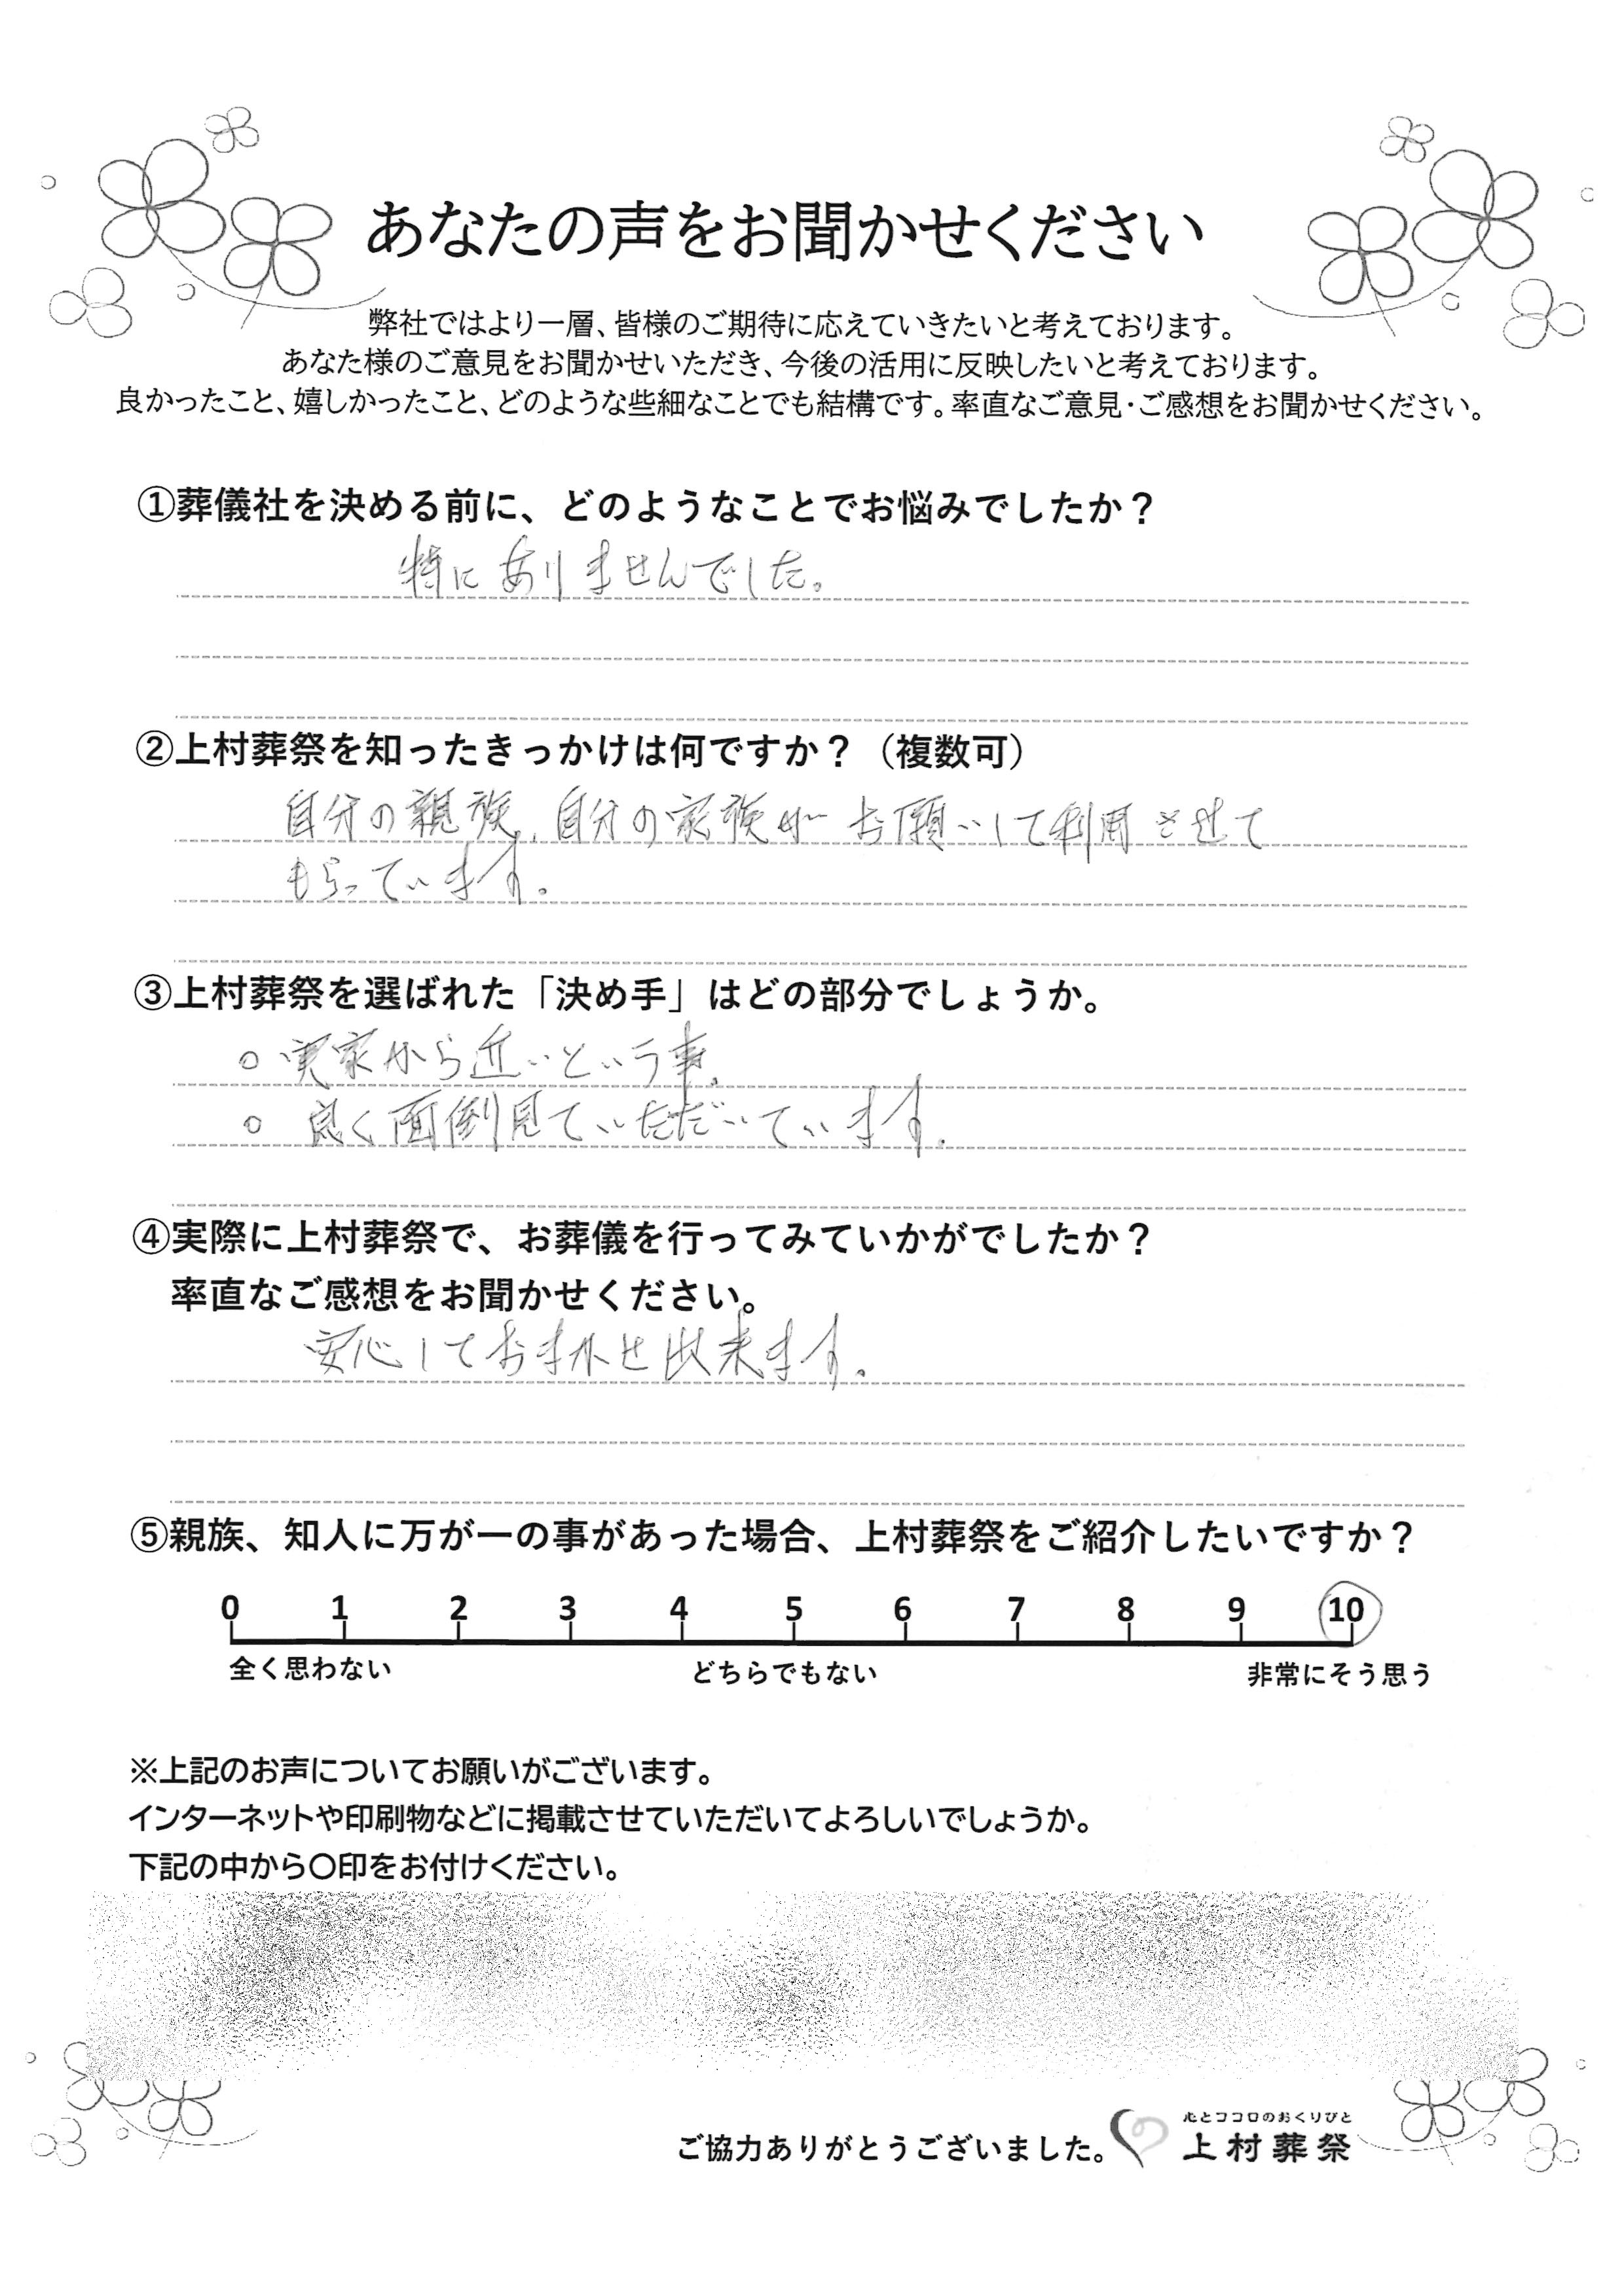 あなたの声をお聞かせください
弊社ではより一層、皆様のご期待に応えていきたいと考えております。
あなた様のご意見をお聞かせいただき、今後の活用に反映したいと考えております。
良かったこと、嬉しかったこと、どのような些細なことでも結構です。率直なご意見・ご感想をお聞かせください。
①葬儀社を決める前に、どのようなことでお悩みでしたか？
特にありませんでした。
②上村葬祭を知ったきっかけは何ですか？（複数可）
自分の親族、自分の家族がお願いして利用させて
もらっています。
③上村葬祭を選ばれた「決め手」はどの部分でしょうか。
○ 実家から近いという事。
○ 良く面倒見ていただいています。
④実際に上村葬祭で、お葬儀を行ってみていかがでしたか？
率直なご感想をお聞かせください。
安心しておまかせ出来ます。
⑤親族、知人に万が一の事があった場合、上村葬祭をご紹介したいですか？
0 1 2 3 4 5 6 7 8 9 10
全く思わない どちらでもない 非常にそう思う
※上記のお声についてお願いがございます。
インターネットや印刷物などに掲載させていただいてよろしいでしょうか。
下記の中から〇印をお付けください。
心とココロのおくりびと
ご協力ありがとうございました。 上村葬祭